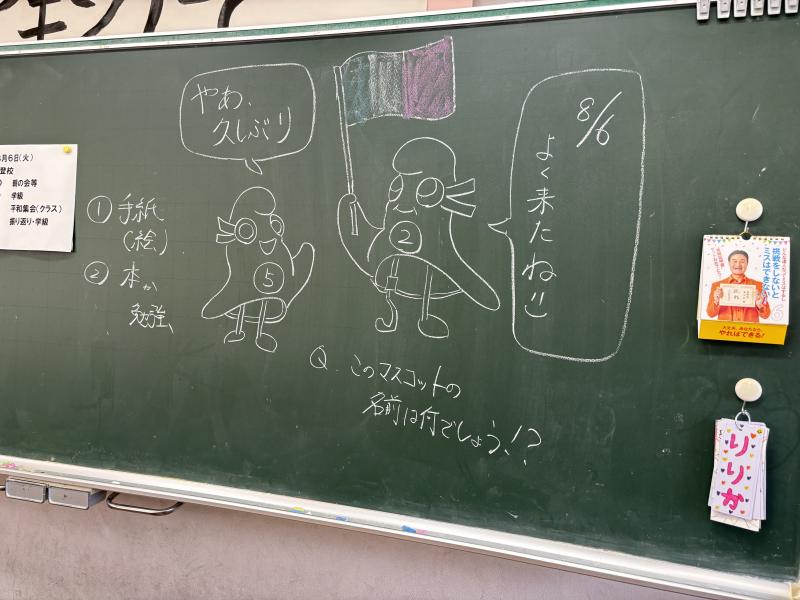 月6日(火)
登校
朝の会等
学級
平和集会(クラス)
振り返り・学級
① 手紙
(絵)
② 本か
勉強、
やあ、
久しぶり
5
2
8/6
よく来たね
Q. このマスコットの
名前は何でしょう!?
挑戦をしないと
ミスはできない
6
大丈夫、あなたなら、
やればできる!
りりか